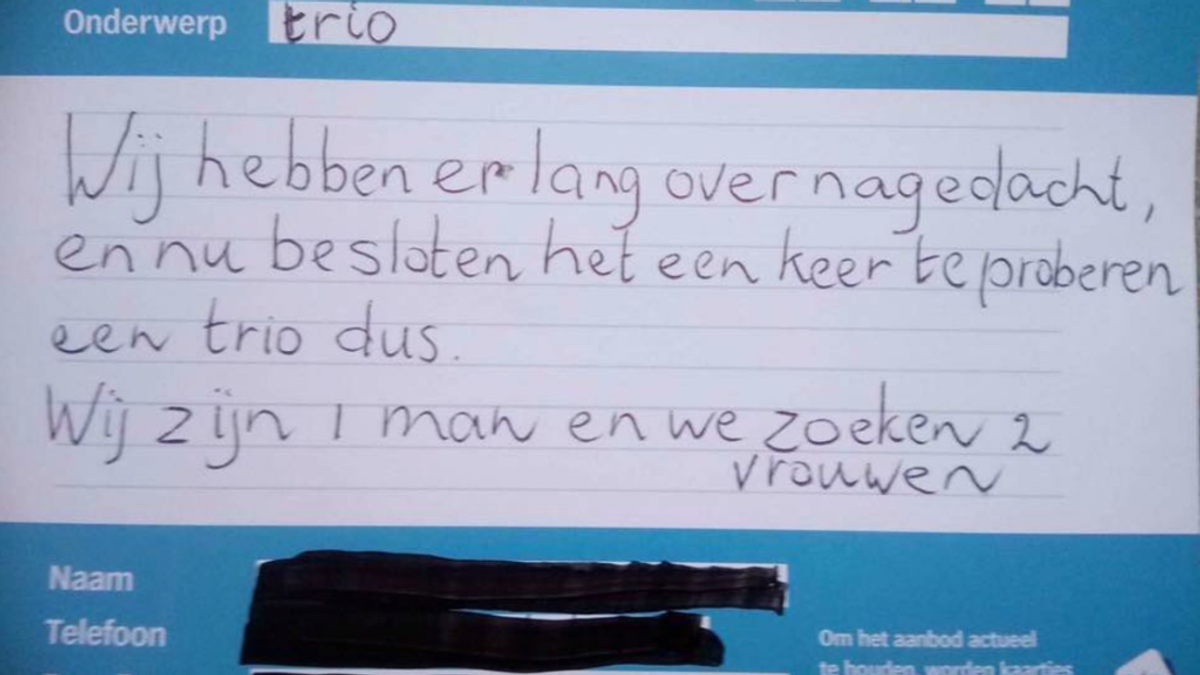 Onderwerp trio
Wij hebben er lang over nagedacht,
en nu besloten het een keer te proberen
een trio dus.
Wij zijn 1 man en we zoeken 2
vrouwen
Naam
Telefoon
Om het aanbod actueel
te houden, worden kaartjes